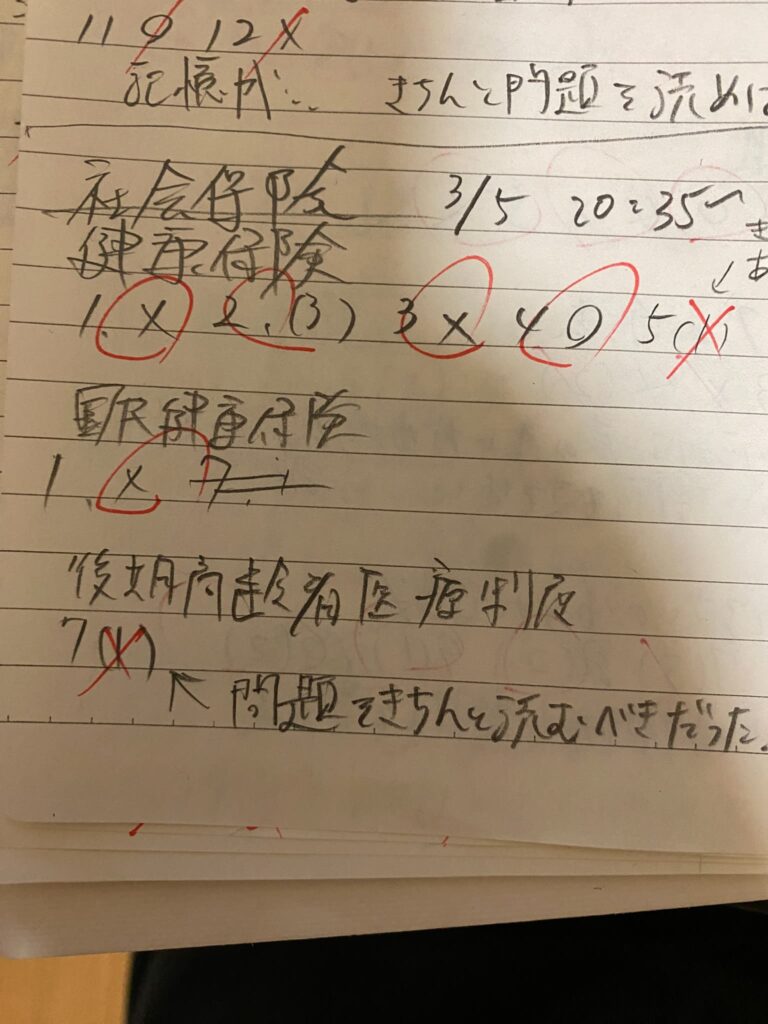 11 〇 12 ×
記憶が… きちんと問題を読めば
社会保険 3/5 20:35〜
健康保険
1. × 2.(3) 3 × 4 〇 5(1)
国民健康保険
1. × 7
後期高齢者医療制度
7(1)
↖ 問題をきちんと読むべきだった。